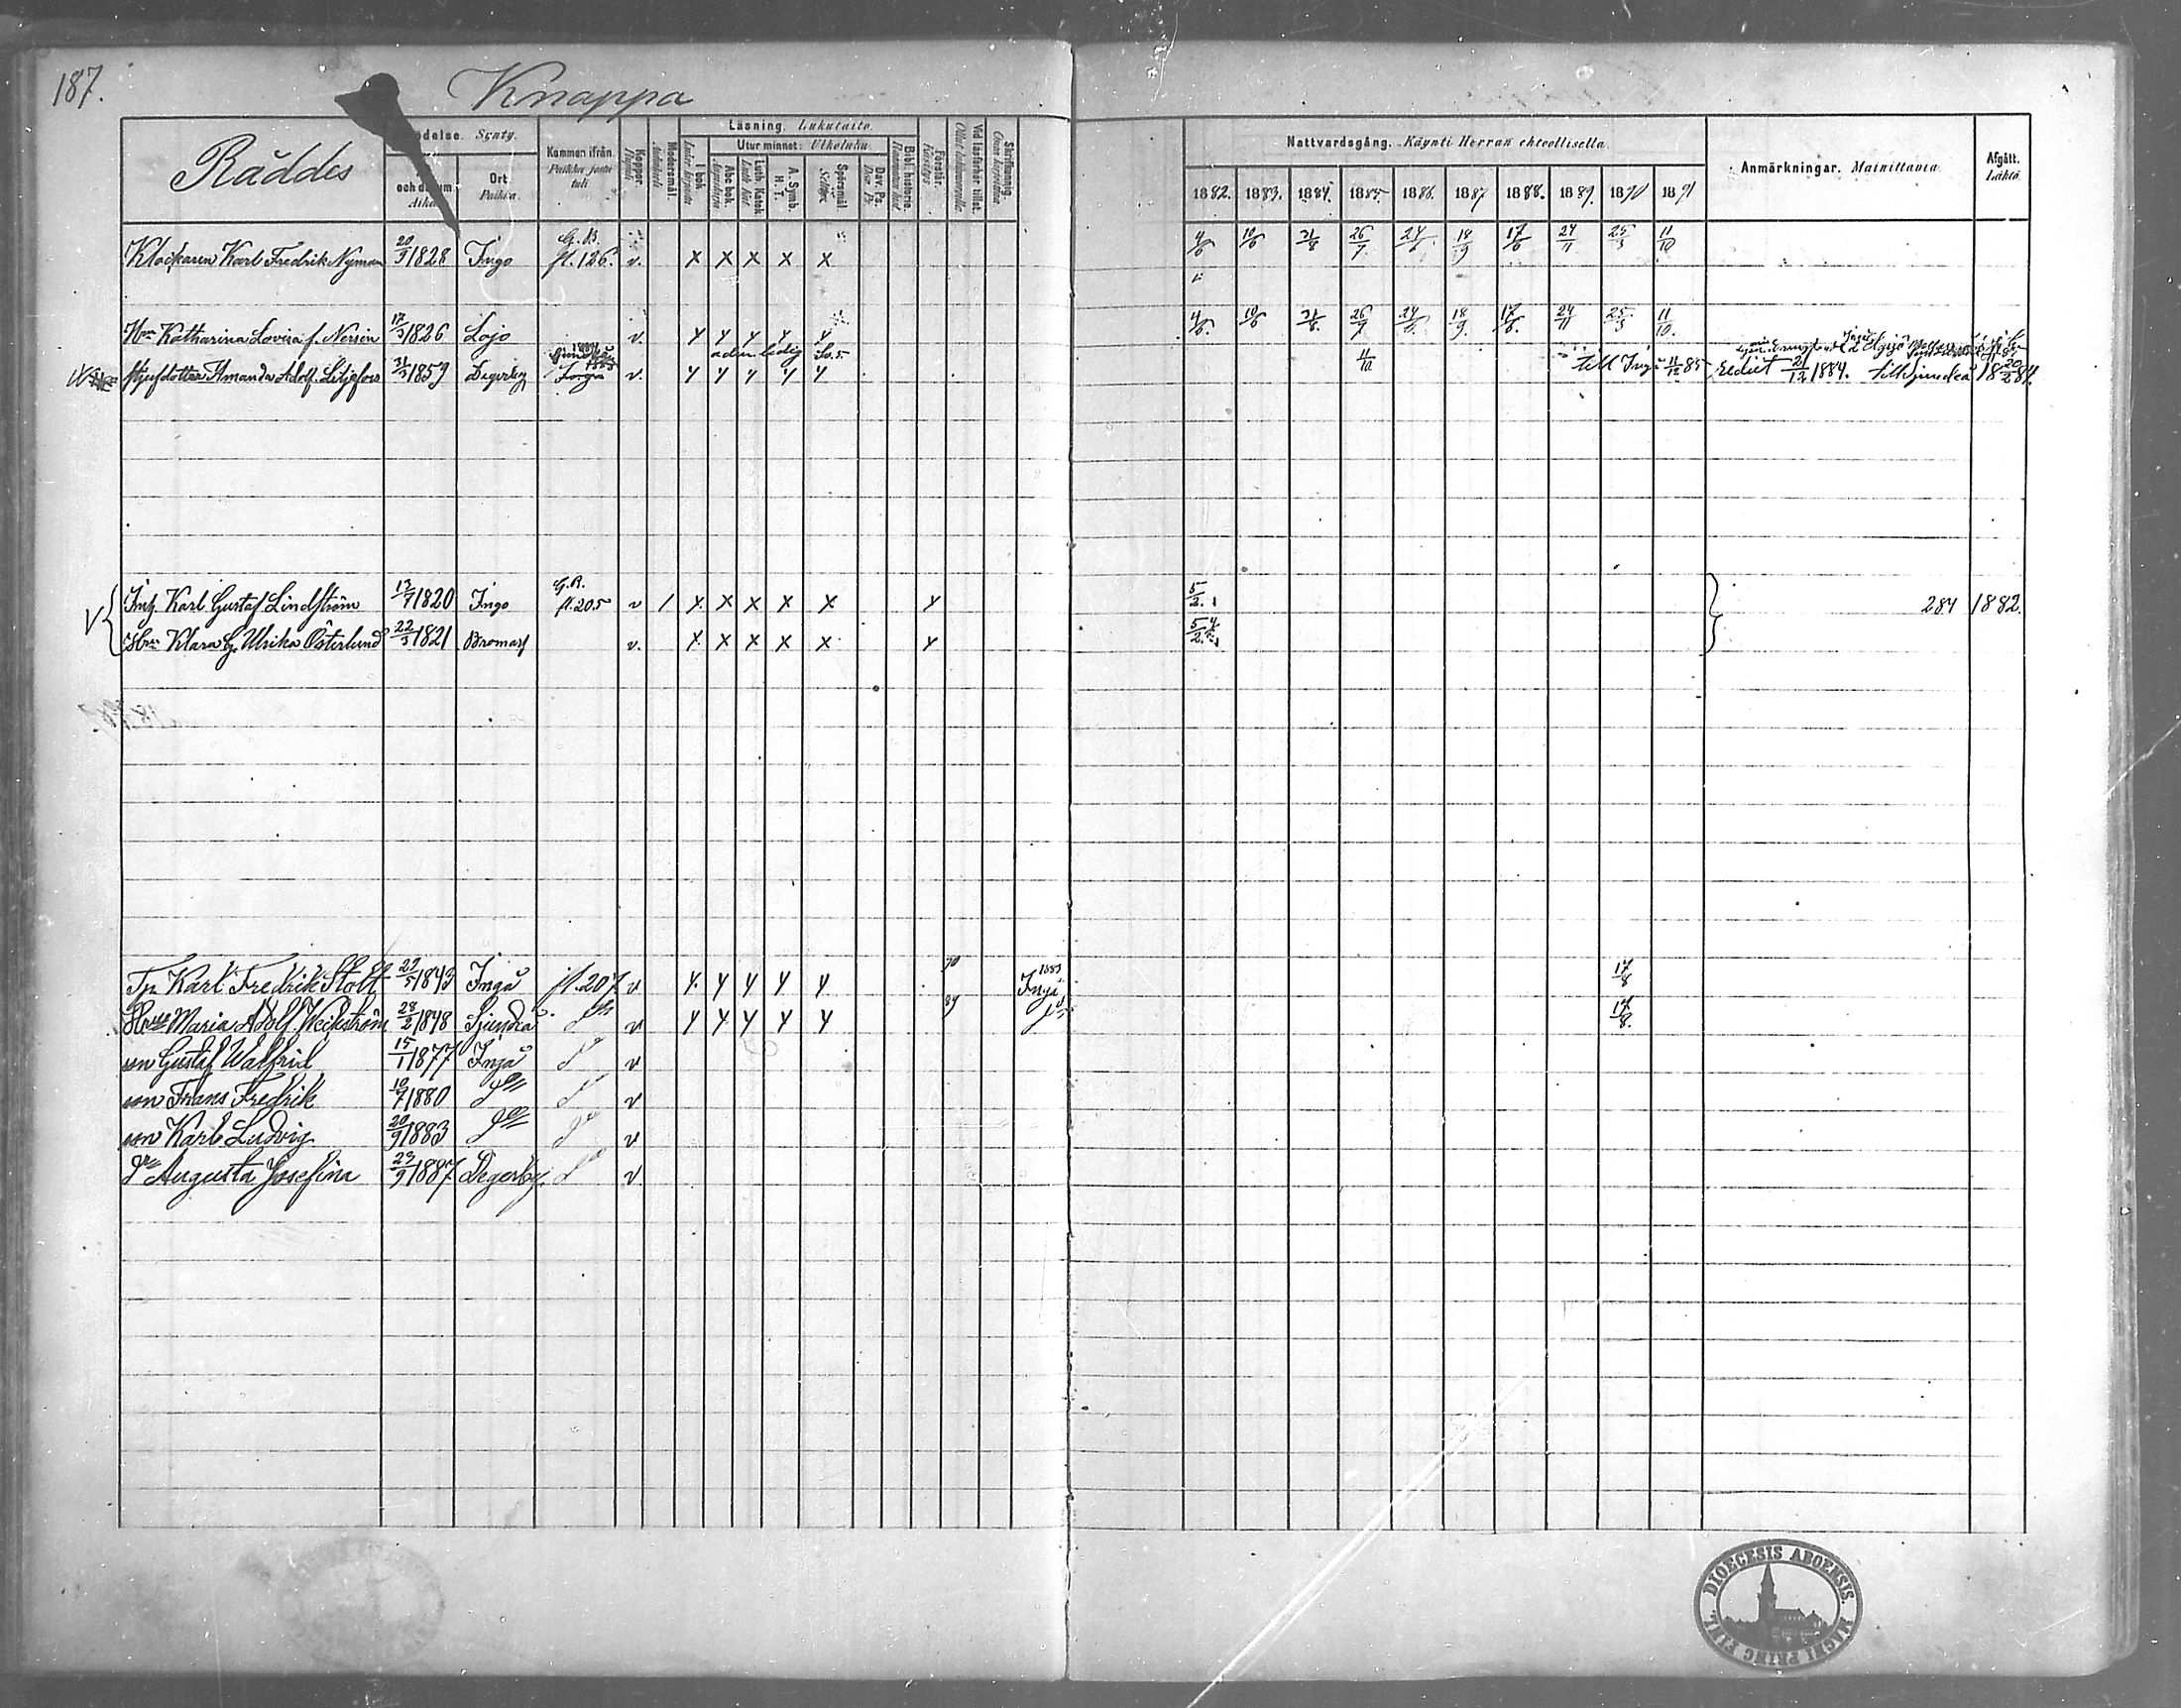 187.
Knappa
Räddes
Födelse. Synty.
och datum. Aika
Ort. Paikka.
Kommen ifrån. Paikka josta tuli
Koppor. Modersmål.
Läsning. Lukutaito.
I bok.
Utur minnet: Ulkoluku.
Abc bok. Luth. Katek. A. Symb. H. T. Spörsmål. Dav. Ps. Bibl. historia. Förstår. Vid läsförhör tillst. Skriftkunnig.
Nattvardsgång. Käynti Herran ehtoollisella.
1882. 1883. 1884. 1885. 1886. 1887 1888. 1889. 1890 1891
Anmärkningar. Mainittavia.
Afgått. Lähtö.
Klockaren Karl Fredrik Nyman 20/3 1828 Ingo G. B. fl. 126. v. x x x x x 4/6 10/6 31/8 26/7. 24/6. 18/9 17/6 24/11 25/3 11/10
Hru Katharina Lovisa f. Nersen 17/3 1826 Lojo v. y y y y y 4/6. 10/6 31/8. 26/7 24/6. 18/9. 17/6. 24/11 25/3 11/10.
styfdotter Amanda Adolf. Liljefors 31/3 1859 Degerby v. y y y y y 11/10 till Ingå 11/12 85 Ledig 21/12 1884. till Sjundeå 18 20/2 84.
Inh. Karl Gustaf Lindström 13/7 1820 Ingo G. B. fl. 205 v / x x x x x y 5/2. 284 1882.
Hru Klara G. Ulrika Österlund 22/3 1821 Bromarf v. x x x x x y 5/2.
Tp. Karl Fredrik Stolt 27/5 1843 Ingå fl. 207 v y y y y y 90 1883 Ingå 17/8
Hru Maria Adolf. Weckström 28/2 1848 Sjundeå v y y y y y 89 17/8.
son Gustaf Walfrid 15/1 1877 Ingå v
son Frans Fredrik 10/7 1880 v
son Karl Ludvig 20/9 1883 v
dr Augusta Josefina 23/9 1887 Degerby v
DIOECESIS ABOENSIS. MAGNI PRINC. FINL.